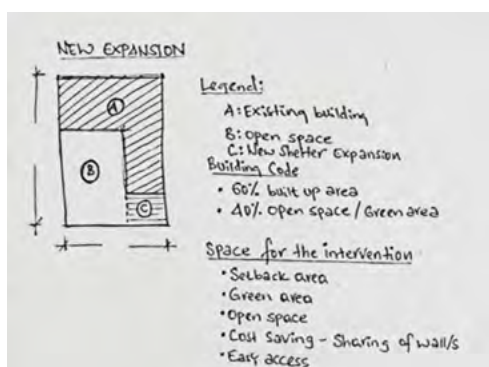 NEW EXPANSION
A
B
C
Legend:
A: Existing building
B: Open space
C: New Shelter Expansion
Building Code
• 60% built up area
• 40% Open space / Green area
Space for the intervention
• Setback area
• Green area
• Open space
• Cost saving - Sharing of wall/s
• Easy access